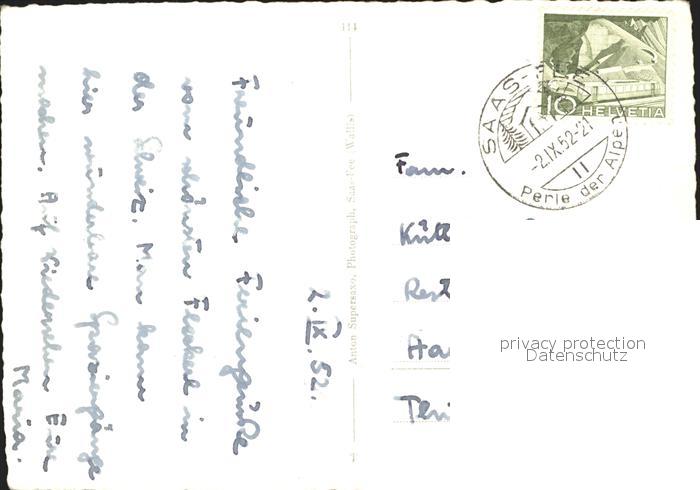 2.IX.52.
Freundliche Feriengrüße
vom schönsten Fleckerl in
der Schweiz. Man kann
hier wunderbare Spaziergänge
machen. Auf Wiedersehen Eure
Maria.
114
Anton Supersaxo, Photograph, Saas-Fee (Wallis)
10
HELVETIA
SAAS-FEE
-2.IX.52-21
II
Perle der Alpen
Fam.
privacy protection
Datenschutz